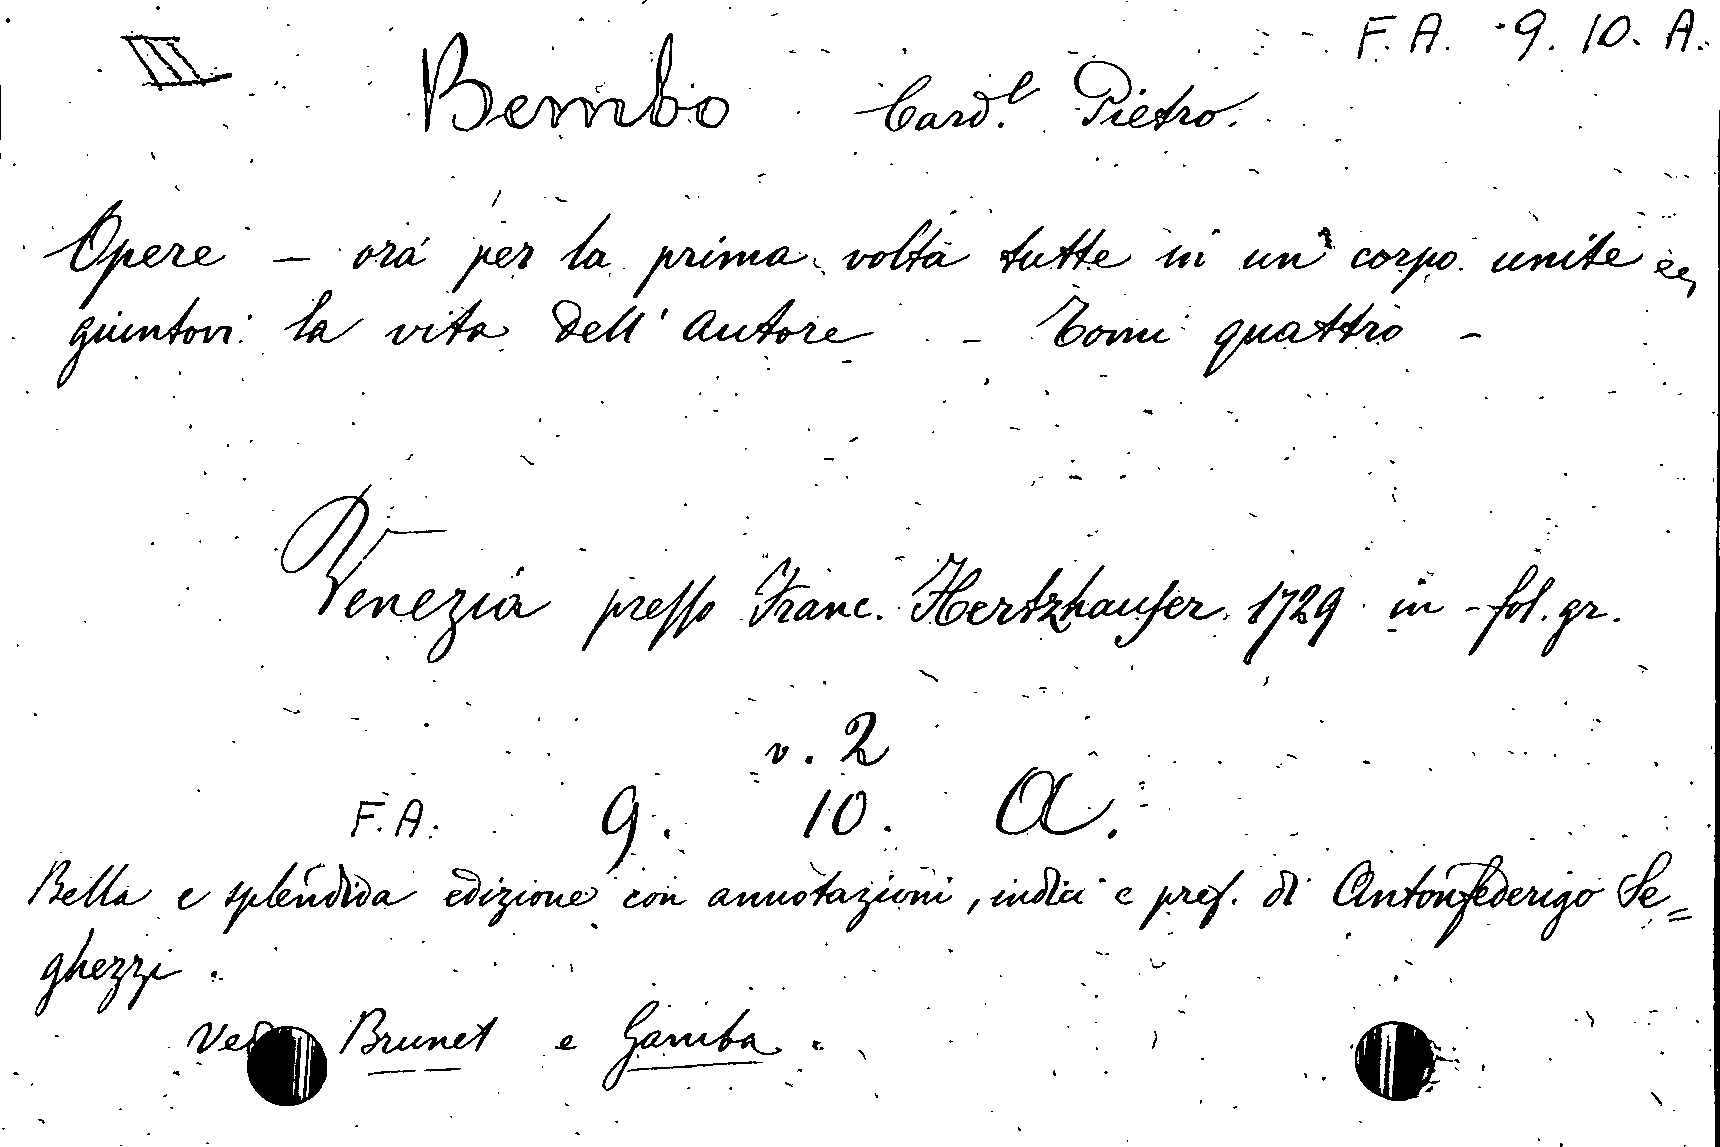 III F. A. 9. 10. A.
Bembo Card.l Pietro.
Opere — ora per la prima volta tutte in un corpo unite ec,
giuntovi la vita dell' Autore - Tomi quattro -
Venezia presso Franc. Hertzhauser 1729 in-fol. gr.
v. 2
F. A. 9. 10. A.
Bella e splendida edizione con annotazioni, indici e pref. di Antonfederigo Se=
ghezzi.
Brunet e Gamba.